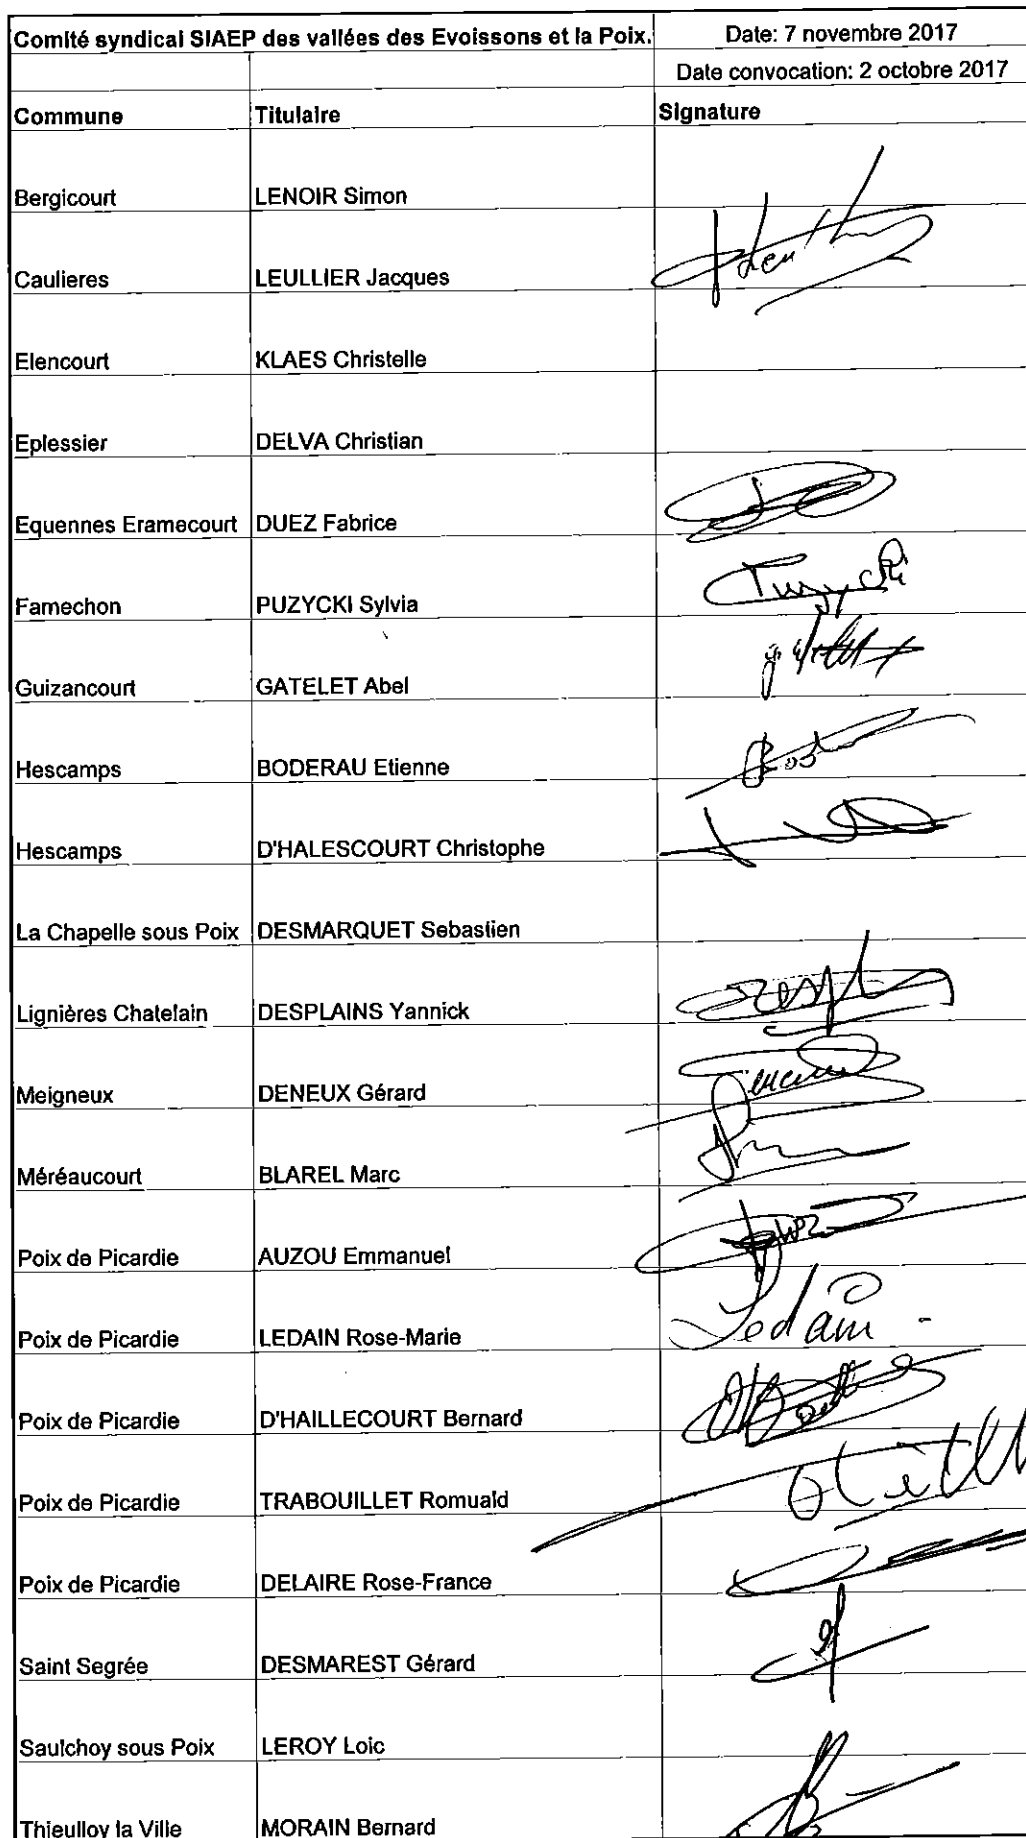 Comité syndical SIAEP des vallées des Evoissons et la Poix. Date: 7 novembre 2017
Date convocation: 2 octobre 2017
Commune Titulaire Signature
Bergicourt LENOIR Simon
Caulieres LEULLIER Jacques
Elencourt KLAES Christelle
Eplessier DELVA Christian
Equennes Eramecourt DUEZ Fabrice
Famechon PUZYCKI Sylvia
Guizancourt GATELET Abel
Hescamps BODERAU Etienne
Hescamps D'HALESCOURT Christophe
La Chapelle sous Poix DESMARQUET Sebastien
Lignières Chatelain DESPLAINS Yannick
Meigneux DENEUX Gérard
Méréaucourt BLAREL Marc
Poix de Picardie AUZOU Emmanuel
Poix de Picardie LEDAIN Rose-Marie Ledain
Poix de Picardie D'HAILLECOURT Bernard
Poix de Picardie TRABOUILLET Romuald
Poix de Picardie DELAIRE Rose-France
Saint Segrée DESMAREST Gérard
Saulchoy sous Poix LEROY Loic
Thieulloy la Ville MORAIN Bernard